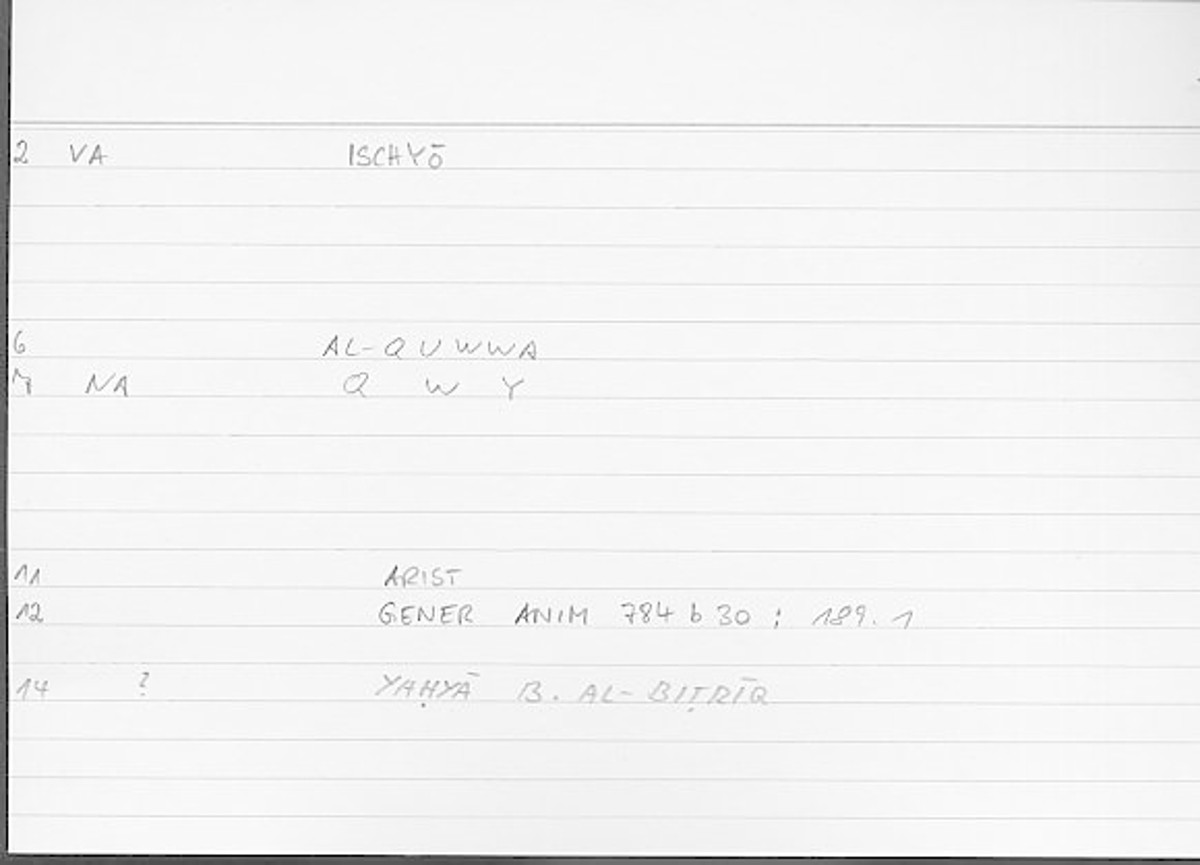 2 VA ISCHYŌ
6 AL-QUWWA
7 NA Q W Y
11 ARIST
12 GENER ANIM 784 b 30 ; 189.1
14 ? YAḤYĀ B. AL-BIṬRĪQ